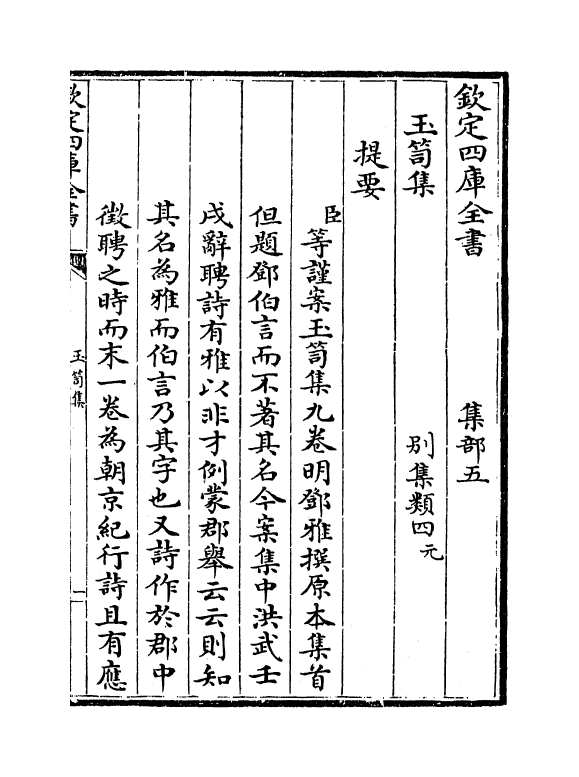 欽定四庫全書　集部五
玉笥集　別集類四元
提要
臣等謹案玉笥集九卷明鄧雅撰原本集首
但題鄧伯言而不著其名今案集中洪武壬
戌辭聘詩有雅以非才例蒙郡舉云云則知
其名為雅而伯言乃其字也又詩作於郡中
徵聘之時而末一卷為朝京紀行詩且有應
欽定四庫全書　玉笥集　一